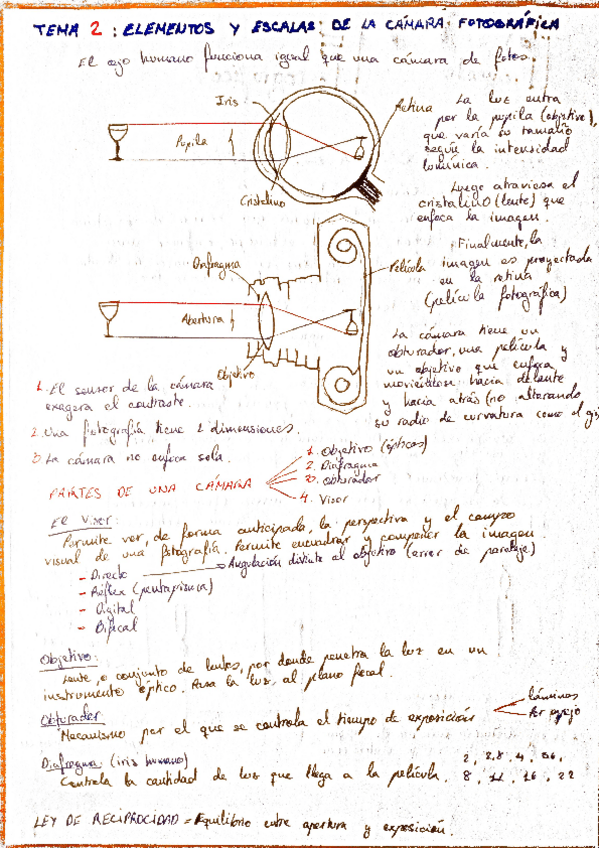 TEMA 2: ELEMENTOS Y ESCALAS DE LA CÁMARA FOTOGRÁFICA
El ojo humano funciona igual que una cámara de fotos.
Iris
Pupila
Cristalino
Retina
La luz entra
por la pupila (objetivo),
que varía su tamaño
según la intensidad
lumínica.
Luego atraviesa el
cristalino (lente) que
enfoca la imagen.
Finalmente, la
imagen es proyectada
en la retina
(película fotográfica)
Diafragma
Película
Abertura
Objetivo
La cámara tiene un
obturador, una película y
un objetivo que enfoca
hacia delante
y hacia atrás (no alterando
su radio de curvatura como el
1. El sensor de la cámara
exagera el contraste.
2. Una fotografía tiene 2 dimensiones.
3. La cámara no enfoca sola.
PARTES DE UNA CÁMARA
1. Objetivo (ópticas)
2. Diafragma
3. Obturador
4. Visor
El Visor:
Permite ver, de forma anticipada, la perspectiva y el campo
visual de una fotografía. Permite encuadrar y componer la imagen
- Directo
Angulación distinta al objetivo (error de paralaje)
- Réflex (pentaprisma)
- Digital
- Bifocal
Objetivo:
Lente, o conjunto de lentes, por donde penetra la luz en un
instrumento óptico. Pasa la luz al plano focal.
Obturador
Mecanismo por el que se controla el tiempo de exposición
láminas
Diafragma: (iris humano)
Controla la cantidad de luz que llega a la película.
2, 2,8, 4, 5,6,
8, 11, 16, 22
LEY DE RECIPROCIDAD = Equilibrio entre apertura y exposición.